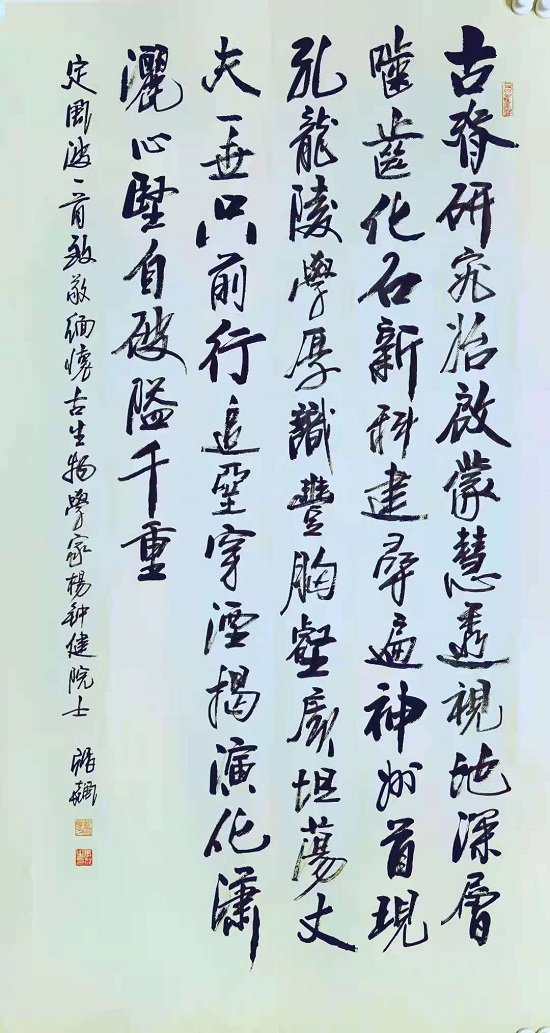 古脊研究始啟蒙慧透視地深層
嚙齒化石新科建尋遍神州首現
孔龍陵學厚識豐胸壑廣坦蕩丈
夫一垂只前行追壑穿湮揭演化瀟
灑心堅自破隘千重
定風波一首致敬緬懷古生物學家楊鍾健院士